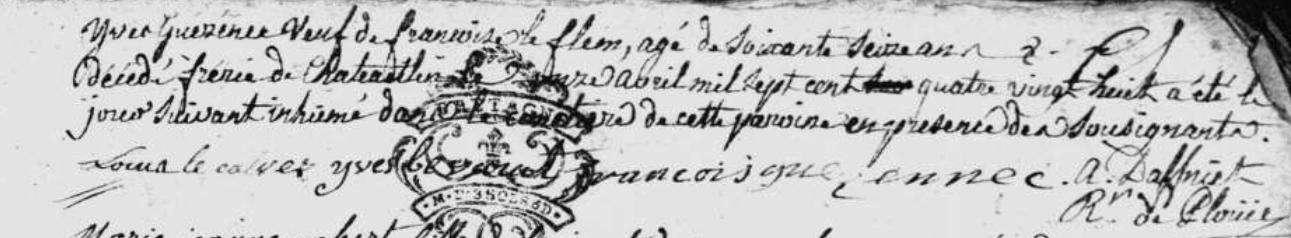 Yves Guezénec Veuf de francoise le flem, agé de Soixante Seize ans
décédé frérie de Chateadlin le onze avril mil Sept cent quatre vingt huit a été le
jour Suivant inhumé dans le cimetiere de cette paroisse en presence des Sousignants.
Louis le yves francois guezennec. A. Daffniet
Rr. de Ploüie
BRETAGNE
Marie